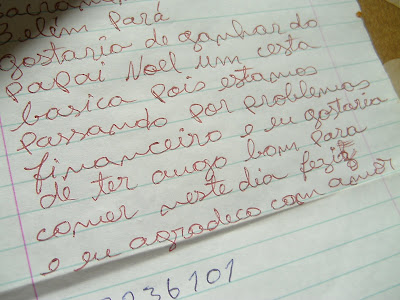 Belém Pará
gostaria de ganhar do
papai Noel um cesta
basica pois estamos
passando por problemas
financeiro e eu gostaria
de ter augo bom para
comer neste dia feriz
e eu agradeco com amor
36101